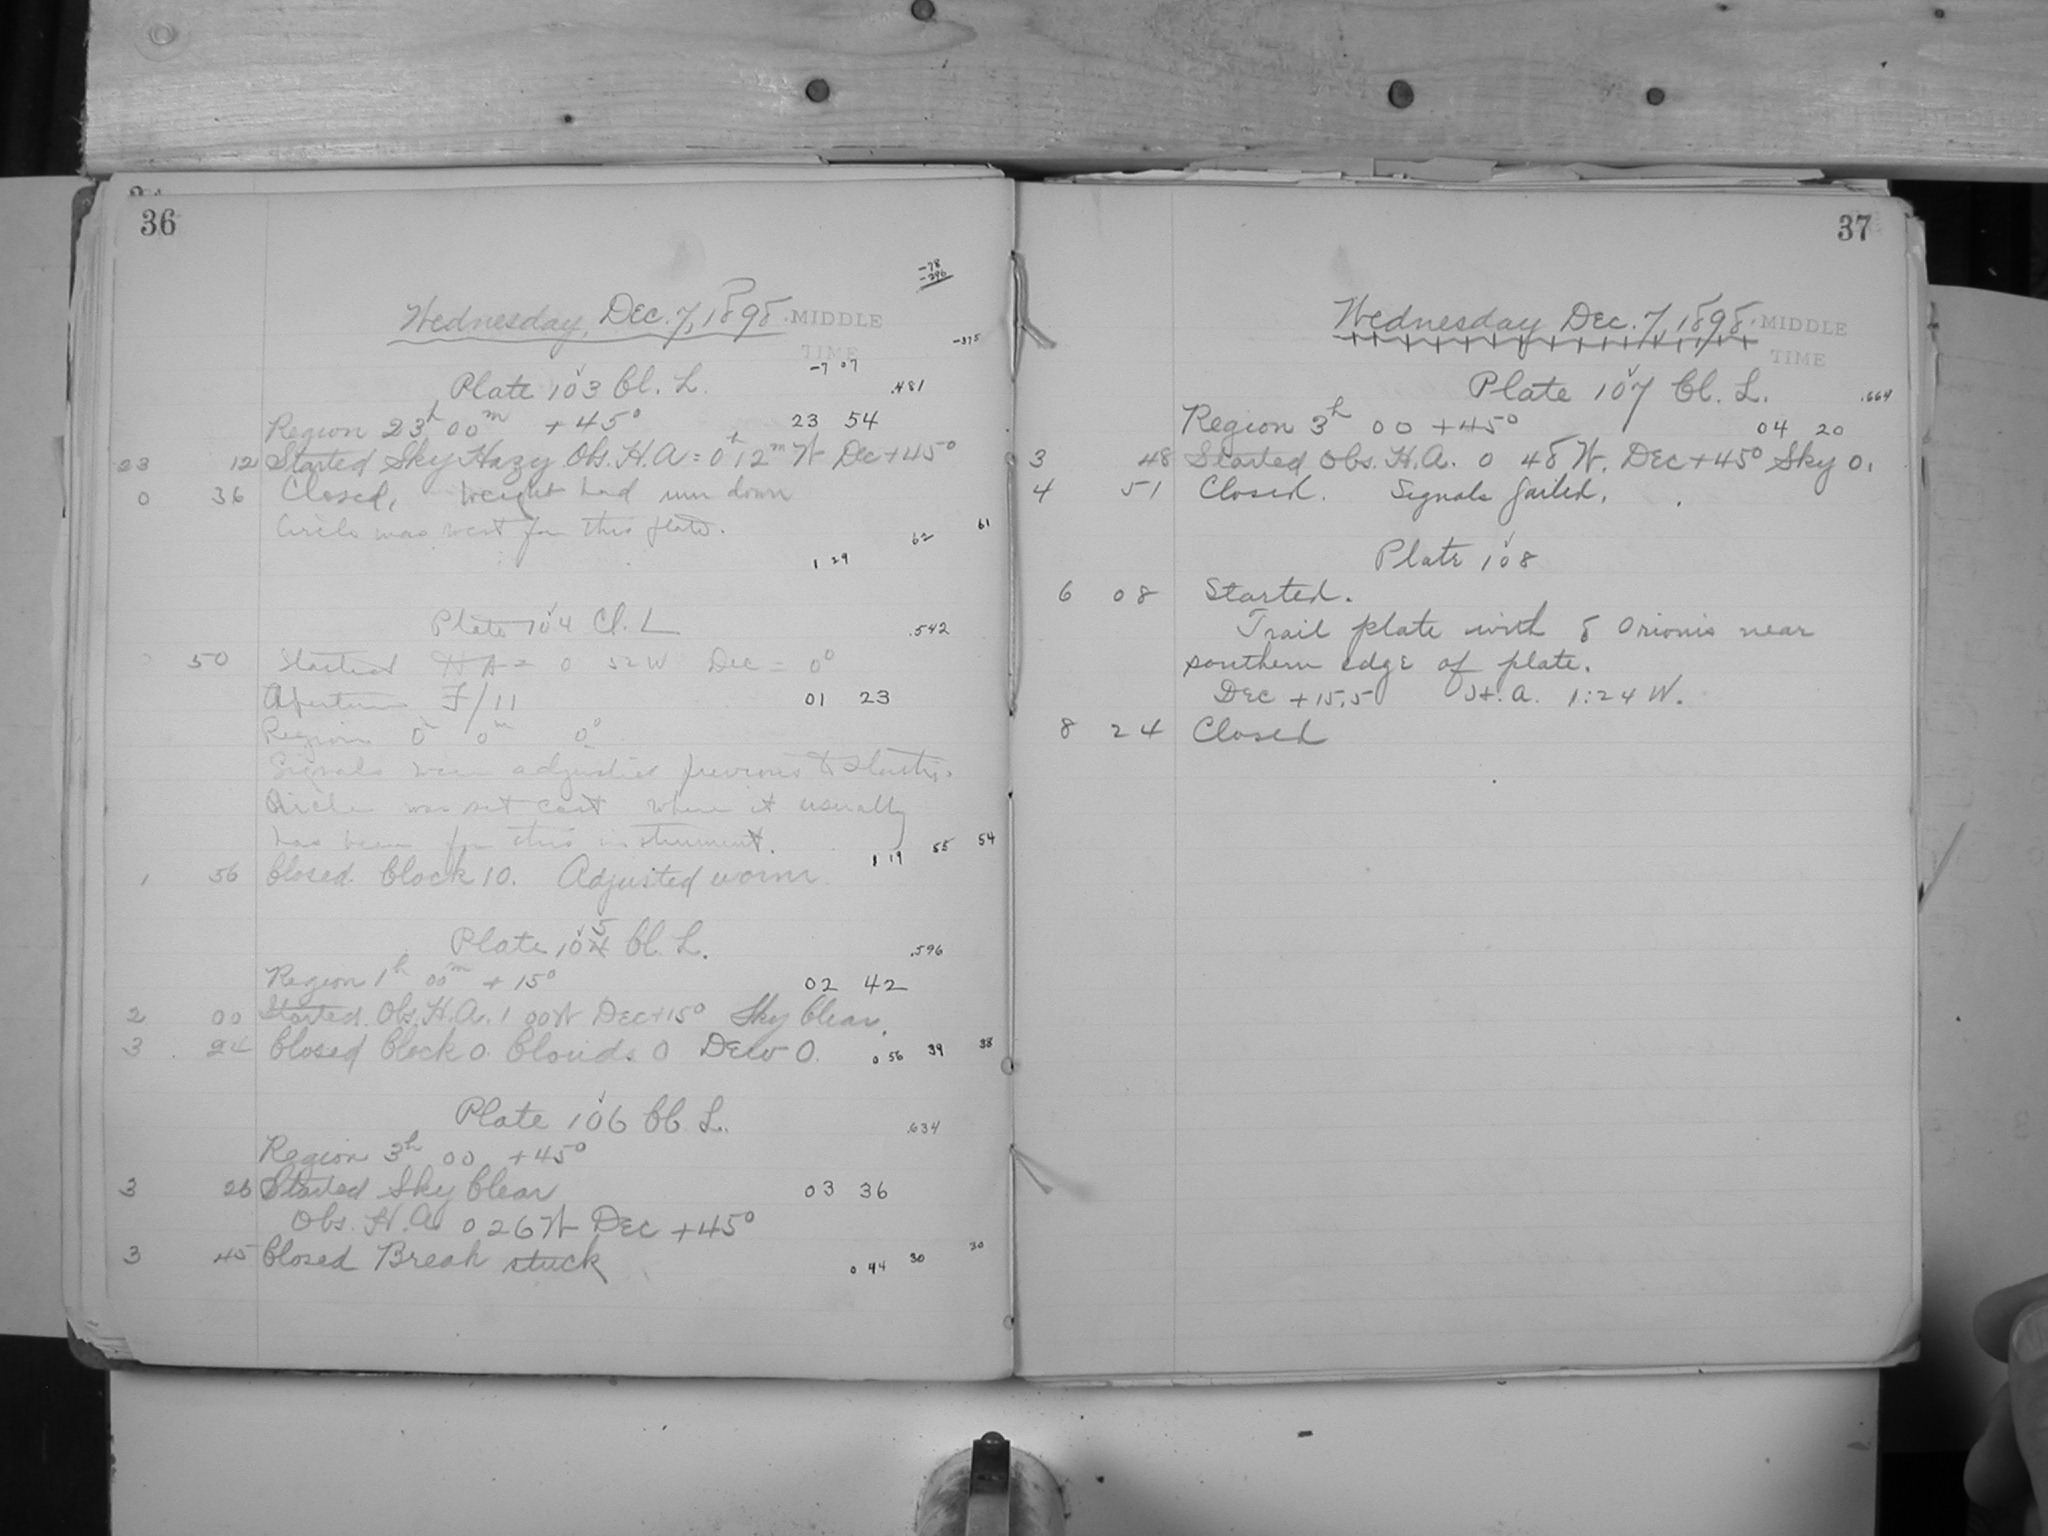 36
-78
-296
Wednesday, Dec. 7, 1898. MIDDLE
TIME
-375
-7 07
Plate 103 Cl. L.
.481
Region 23h 00m +45° 23 54
23 12 Started Sky Hazy Obs. H.A = 0h 12m W Dec +45°
0 36 Closed, Weight had run down
Circle was west for this plate.
62 61
1 29
Plate 104 Cl. L
.542
50 Started HA = 0 52 W Dec = 0°
Aperture F/11 01 23
Region 0h 0m 0°
Signals were adjusted previous to starting.
Circle was set east where it usually
has been for this instrument.
1 19 55 54
1 56 Closed. Clock 10. Adjusted worm.
Plate 105 Cl. L.
.596
Region 1h 00m +15° 02 42
2 00 Started Obs. H.A. 1 00 W Dec +15° Sky Clear.
3 24 Closed Clock 0. Clouds 0 Dew 0. 0 56 39 38
Plate 106 Cl. L.
.634
Region 3h 00 +45°
3 26 Started Sky Clear 03 36
Obs. H.A. 0 26 W Dec +45°
3 45 Closed Break stuck
0 44 30 30
37
Wednesday Dec. 7, 1898. MIDDLE
TIME
Plate 107 Cl. L.
.664
Region 3h 00 +45° 04 20
3 48 Started Obs. H.A. 0 48 W. Dec +45° Sky 0.
4 51 Closed. Signals failed.
Plate 108
6 08 Started.
Trail plate with δ Orionis near
southern edge of plate.
Dec +15.5 H.A. 1:24 W.
8 24 Closed